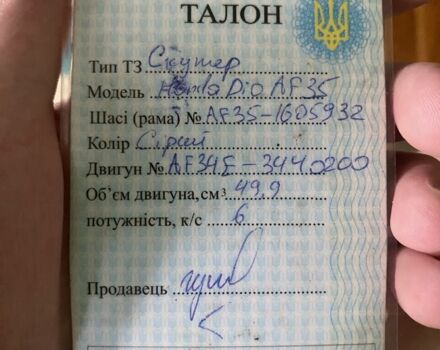 ТАЛОН
Тип ТЗ Скутер
Модель Honda Dio AF35
Шасі (рама) № AF35-1605932
Колір Сірий
Двигун № AF34E-3440200
Об'єм двигуна, см³ 49,9
потужність, к/с 6
Продавець